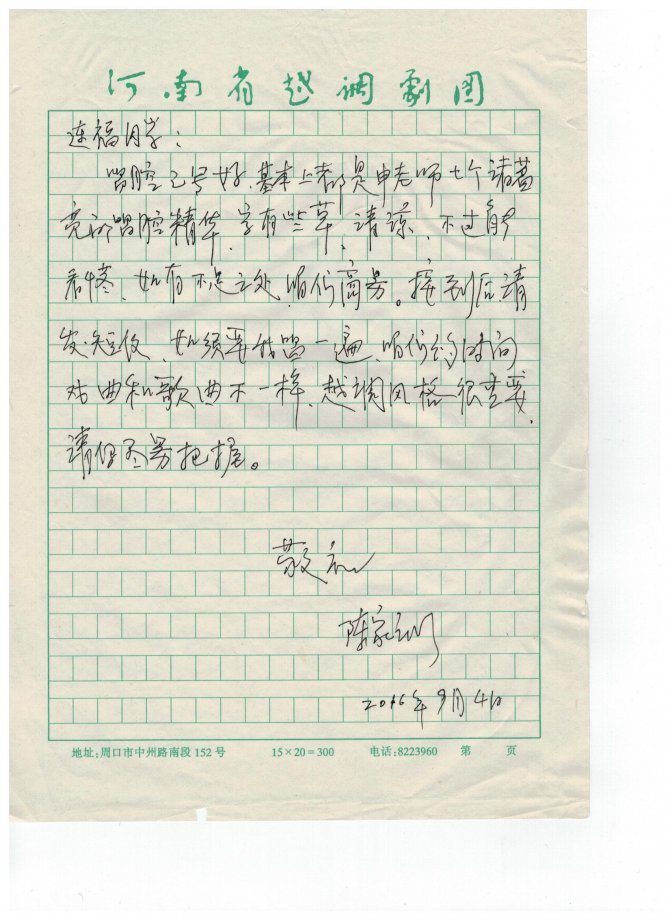 河南省越调剧团
连福同学：
唱腔已写好，基本上都是申老师七个诸葛
亮的唱腔精华，字有些草，请谅，不过能
看懂，如有不足之处，咱们商易。接到后请
发短仪，如须要我唱一遍，咱们约时间
戏曲和歌曲不一样，越调风格很重要，
请你尽易把握。
敬礼
陈家训
2016年9月4日
地址:周口市中州路南段152号 15×20=300 电话:8223960 第 页